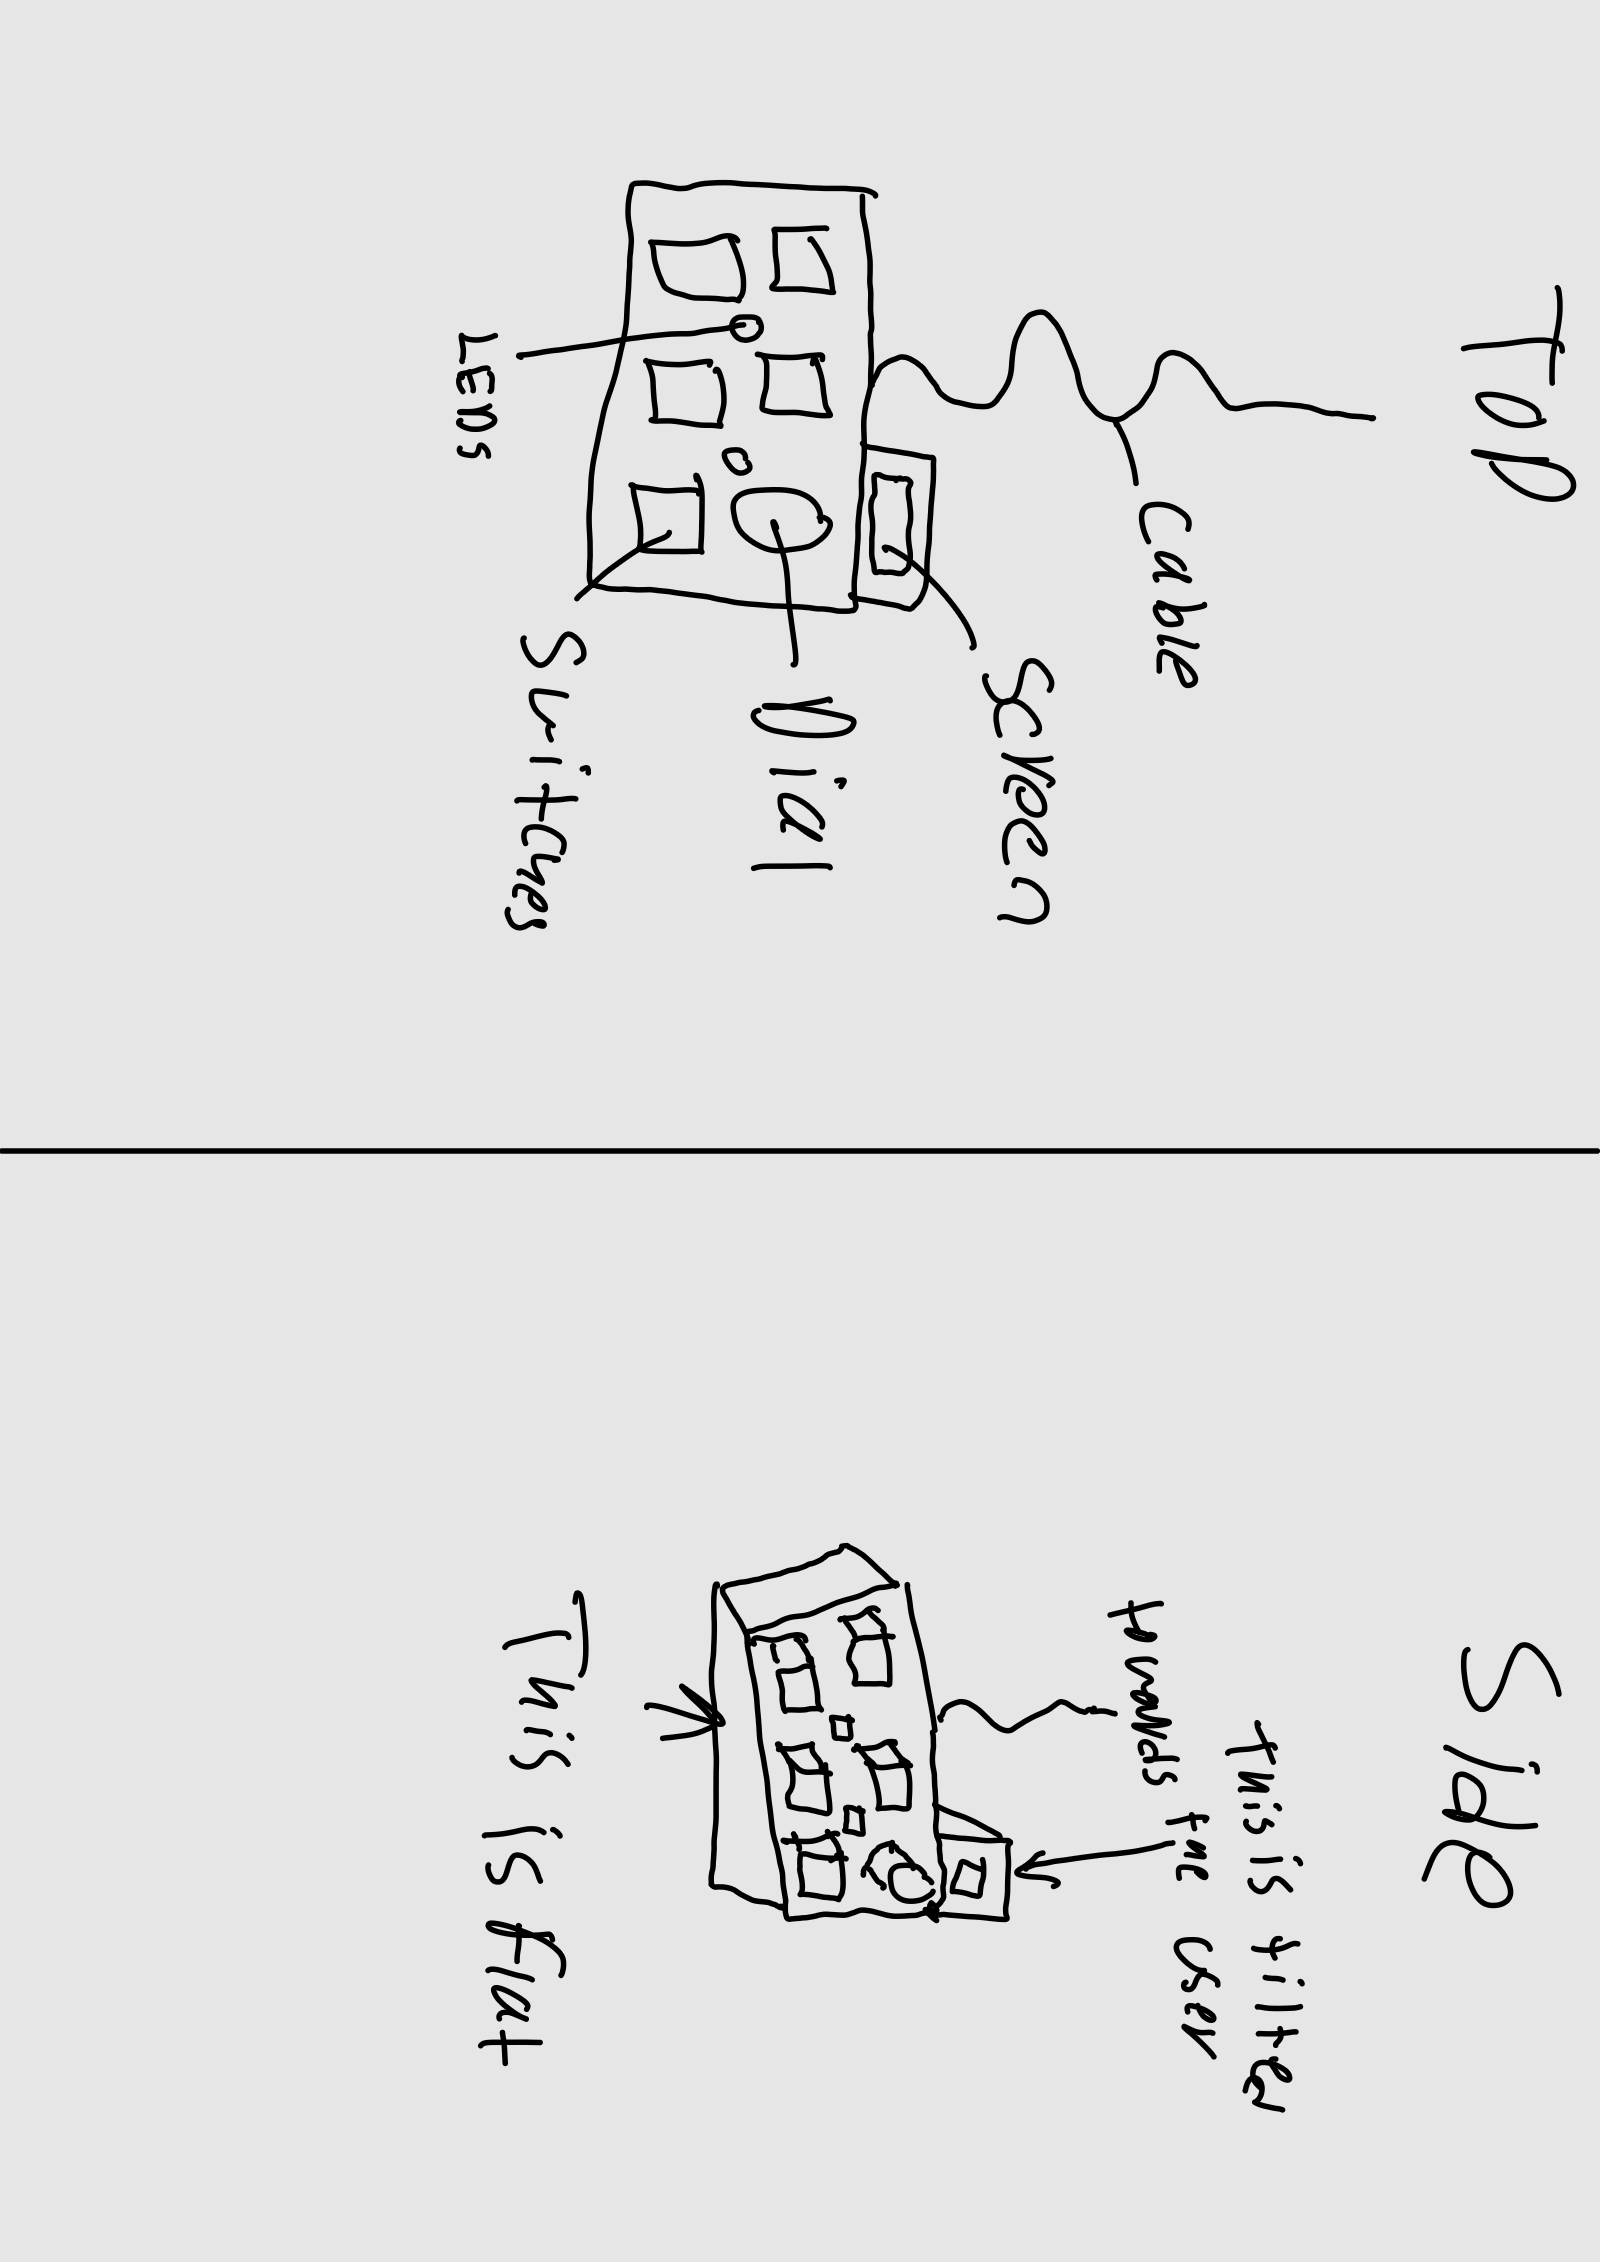 TOP
Cable
Screen
Dial
Switches
LENS
Side
This is tilted
towards the user
This is flat